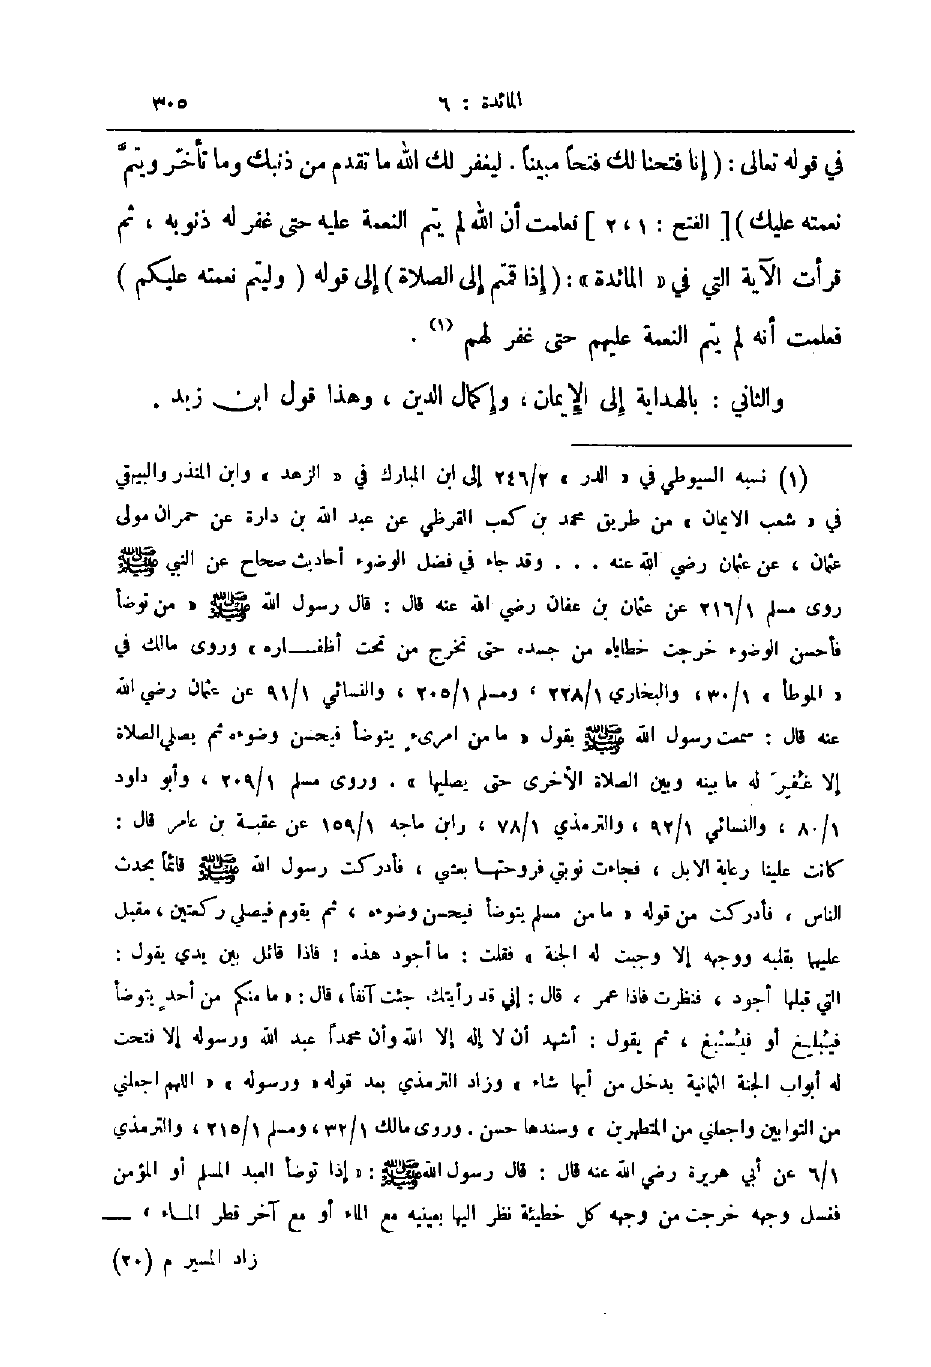 المائدة : ٦ ٣٠٥
في قوله تعالى : ( إنا فتحنا لك فتحاً مبيناً . ليغفر لك الله ما تقدم من ذنبك وما تأخّر ويتمَّ
نعمته عليك ) [ الفتح : ١ ، ٢ ] فعلمت أن الله لم يتم النعمة عليه حتى غفر له ذنوبه ، ثم
قرأت الآية التي في « المائدة » : ( إذا قمتم إلى الصلاة ) إلى قوله ( وليتم نعمته عليكم )
فعلمت أنه لم يتم النعمة عليهم حتى غفر لهم (١) .
والثاني : بالهداية إلى الإيمان ، وإكمال الدين ، وهذا قول ابن زيد .
(١) نسبه السيوطي في « الدر » ٢٤٦/٢ إلى ابن المبارك في « الزهد » وابن المنذر والبيهقي
في « شعب الايمان » من طريق محمد بن كعب القرظي عن عبد الله بن دارة عن حمران مولى
عثمان ، عن عثمان رضي الله عنه . . . وقد جاء في فضل الوضوء أحاديث صحاح عن النبي ﷺ
روى مسلم ٢١٦/١ عن عثمان بن عفان رضي الله عنه قال : قال رسول الله ﷺ « من توضأ
فأحسن الوضوء خرجت خطاياه من جسده حتى تخرج من تحت أظفـــاره » وروى مالك في
« الموطأ » ٣٠/١ ، والبخاري ٢٢٨/١ ، ومسلم ٢٠٥/١ ، والنسائي ٩١/١ عن عثمان رضي الله
عنه قال : سمعت رسول الله ﷺ يقول « ما من امرىء يتوضأ فيحسن وضوءه ثم يصلي الصلاة
إلا غُفِرَ له ما بينه وبين الصلاة الأخرى حتى يصليها » . وروى مسلم ٢٠٩/١ ، وأبو داود
٨٠/١ ، والنسائي ٩٢/١ ، والترمذي ٧٨/١ ، وابن ماجه ١٥٩/١ عن عقبة بن عامر قال :
كانت علينا رعاية الابل ، فجاءت نوبتي فروحتهـا بعشي ، فأدركت رسول الله ﷺ قائماً يحدث
الناس ، فأدركت من قوله « ما من مسلم يتوضأ فيحسن وضوءه ، ثم يقوم فيصلي ركعتين ، مقبل
عليها بقلبه ووجهه إلا وجبت له الجنة » فقلت : ما أجود هذه ! فاذا قائل بين يدي يقول :
التي قبلها أجود ، فنظرت فاذا عمر ، قال : إني قد رأيتك جئت آنفاً ، قال : « ما منكم من أحدٍ يتوضأ
فيُبْلِغ أو فيُسْبِغ ، ثم يقول : أشهد أن لا إله إلا الله وأن محمداً عبد الله ورسوله إلا فتحت
له أبواب الجنة الثمانية يدخل من أيها شاء » وزاد الترمذي بعد قوله « ورسوله » « اللهم اجعلني
من التوابين واجعلني من المتطهرين » وسندها حسن . وروى مالك ٣٢/١ ، ومسلم ٢١٥/١ ، والترمذي
٦/١ عن أبي هريرة رضي الله عنه قال : قال رسول الله ﷺ : « إذا توضأ العبد المسلم أو المؤمن
فغسل وجهه خرجت من وجهه كل خطيئة نظر اليها بعينيه مع الماء أو مع آخر قطر المـاء ، —
زاد المسير م (٢٠)